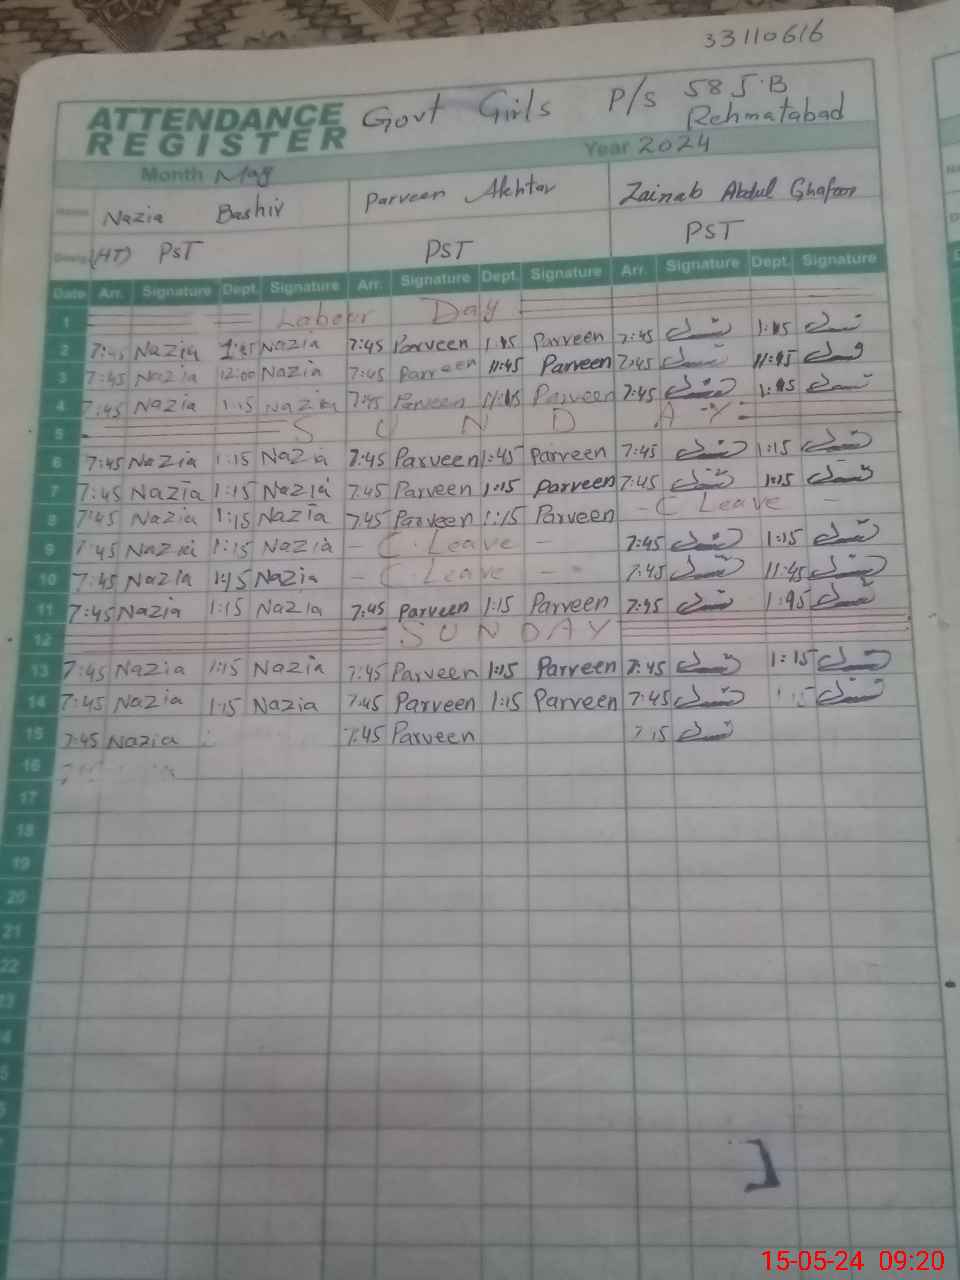 33110616
ATTENDANCE REGISTER Govt Girls P/S 585·B Rehmatabad
Month May Year 2024
Name Nazia Bashir Parveen Akhtar Zainab Abdul Ghafoor
(HT) PST PST PST
Date Arr. Signature Dept. Signature Arr. Signature Dept. Signature Arr. Signature Dept. Signature
1 Labour Day
2 7:45 Nazia Nazia 7:45 Parveen Parveen 7:45
3 7:45 Nazia 12:00 Nazia 7:45 Parveen 11:45 Parveen 7:45 11:45
4 7:45 Nazia 1:15 Nazia 7:45 Parveen Parveen 7:45
5 S U N D A Y
6 7:45 Nazia 1:15 Nazia 7:45 Parveen 1:45 Parveen 7:45 1:15
7 7:45 Nazia 1:15 Nazia 7:45 Parveen 1:15 Parveen 7:45 1:15
8 7:45 Nazia 1:15 Nazia 7:45 Parveen 1:15 Parveen - C Leave -
9 7:45 Nazia 1:15 Nazia - C. Leave - 7:45 1:15
10 7:45 Nazia 1:15 Nazia - C. Leave - 7:45 11:45
11 7:45 Nazia 1:15 Nazia 7:45 Parveen 1:15 Parveen 7:45 1:45
12 S U N D A Y
13 7:45 Nazia 1:15 Nazia 7:45 Parveen 1:15 Parveen 7:45 1:15
14 7:45 Nazia 1:15 Nazia 7:45 Parveen 1:15 Parveen 7:45
15 7:45 Nazia 7:45 Parveen
16
17
18
19
20
21
22
15-05-24 09:20